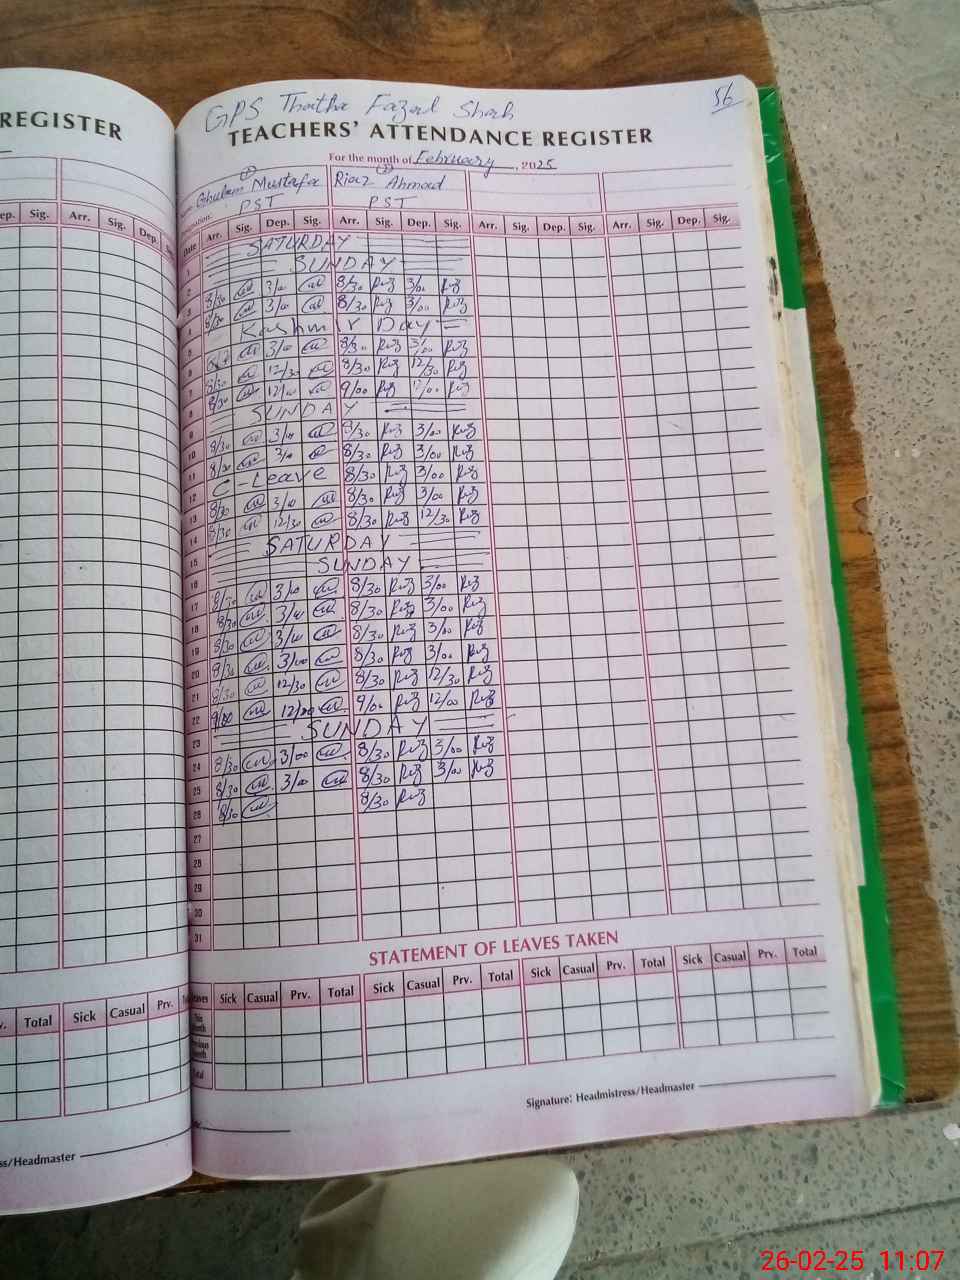 REGISTER
GPS Thatha Fazal Shah
56
TEACHERS' ATTENDANCE REGISTER
For the month of February, 2025
① ②
Ghulam Mustafa Riaz Ahmad
PST PST
ep. Sig. Arr. Sig. Dep.
Date Arr. Sig. Dep. Sig. Arr. Sig. Dep. Sig. Arr. Sig. Dep. Sig. Arr. Sig. Dep. Sig.
1 SATURDAY
2 SUNDAY
3 8/30 3/00 8/30 Riaz 3/00 Riaz
4 8/30 3/00 8/30 Riaz 3/00 Riaz
5 Kashmir Day
6 3/00 8/30 Riaz 3/00 Riaz
7 8/30 12/30 8/30 Riaz 12/30 Riaz
8 8/30 12/00 9/00 Riaz 12/00 Riaz
9 SUNDAY
10 8/30 3/00 8/30 Riaz 3/00 Riaz
11 8/30 3/00 8/30 Riaz 3/00 Riaz
12 C-Leave 8/30 Riaz 3/00 Riaz
13 8/30 3/00 8/30 Riaz 3/00 Riaz
14 8/30 12/30 8/30 Riaz 12/30 Riaz
15 SATURDAY
16 SUNDAY
17 8/30 3/00 8/30 Riaz 3/00 Riaz
18 8/30 3/00 8/30 Riaz 3/00 Riaz
19 8/30 3/00 8/30 Riaz 3/00 Riaz
20 8/30 3/00 8/30 Riaz 3/00 Riaz
21 8/30 12/30 8/30 Riaz 12/30 Riaz
22 12/00 9/00 Riaz 12/00 Riaz
23 SUNDAY
24 8/30 3/00 8/30 Riaz 3/00 Riaz
25 8/30 3/00 8/30 Riaz 3/00 Riaz
26 8/30 8/30 Riaz
27
28
29
30
31
STATEMENT OF LEAVES TAKEN
Total Sick Casual Prv.
Sick Casual Prv. Total Sick Casual Prv. Total Sick Casual Prv. Total Sick Casual Prv. Total
Signature: Headmistress/Headmaster
ss/Headmaster
26-02-25 11:07